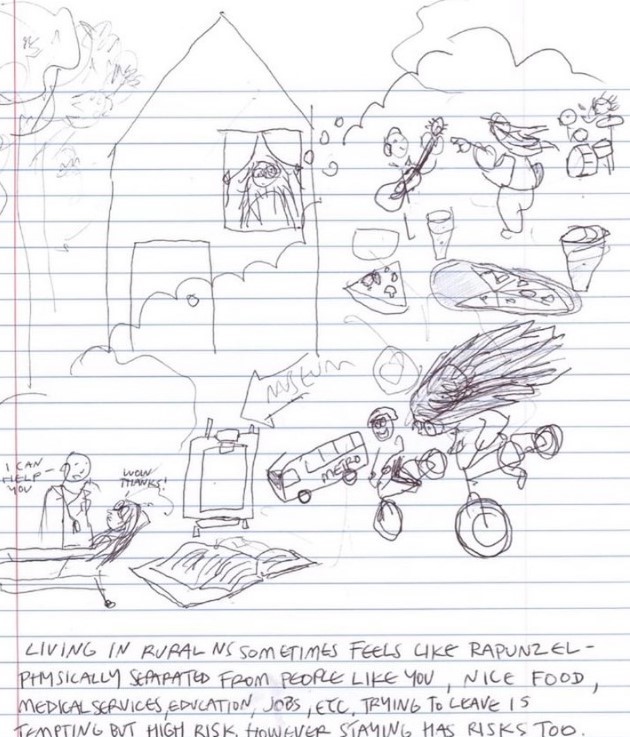 MUSEUM
METRO
I CAN
HELP
YOU
WOW
THANKS!
LIVING IN RURAL NS SOMETIMES FEELS LIKE RAPUNZEL -
PHYSICALLY SEPARATED FROM PEOPLE LIKE YOU, NICE FOOD,
MEDICAL SERVICES, EDUCATION, JOBS, ETC. TRYING TO LEAVE IS
TEMPTING BUT HIGH RISK. HOWEVER STAYING HAS RISKS TOO.